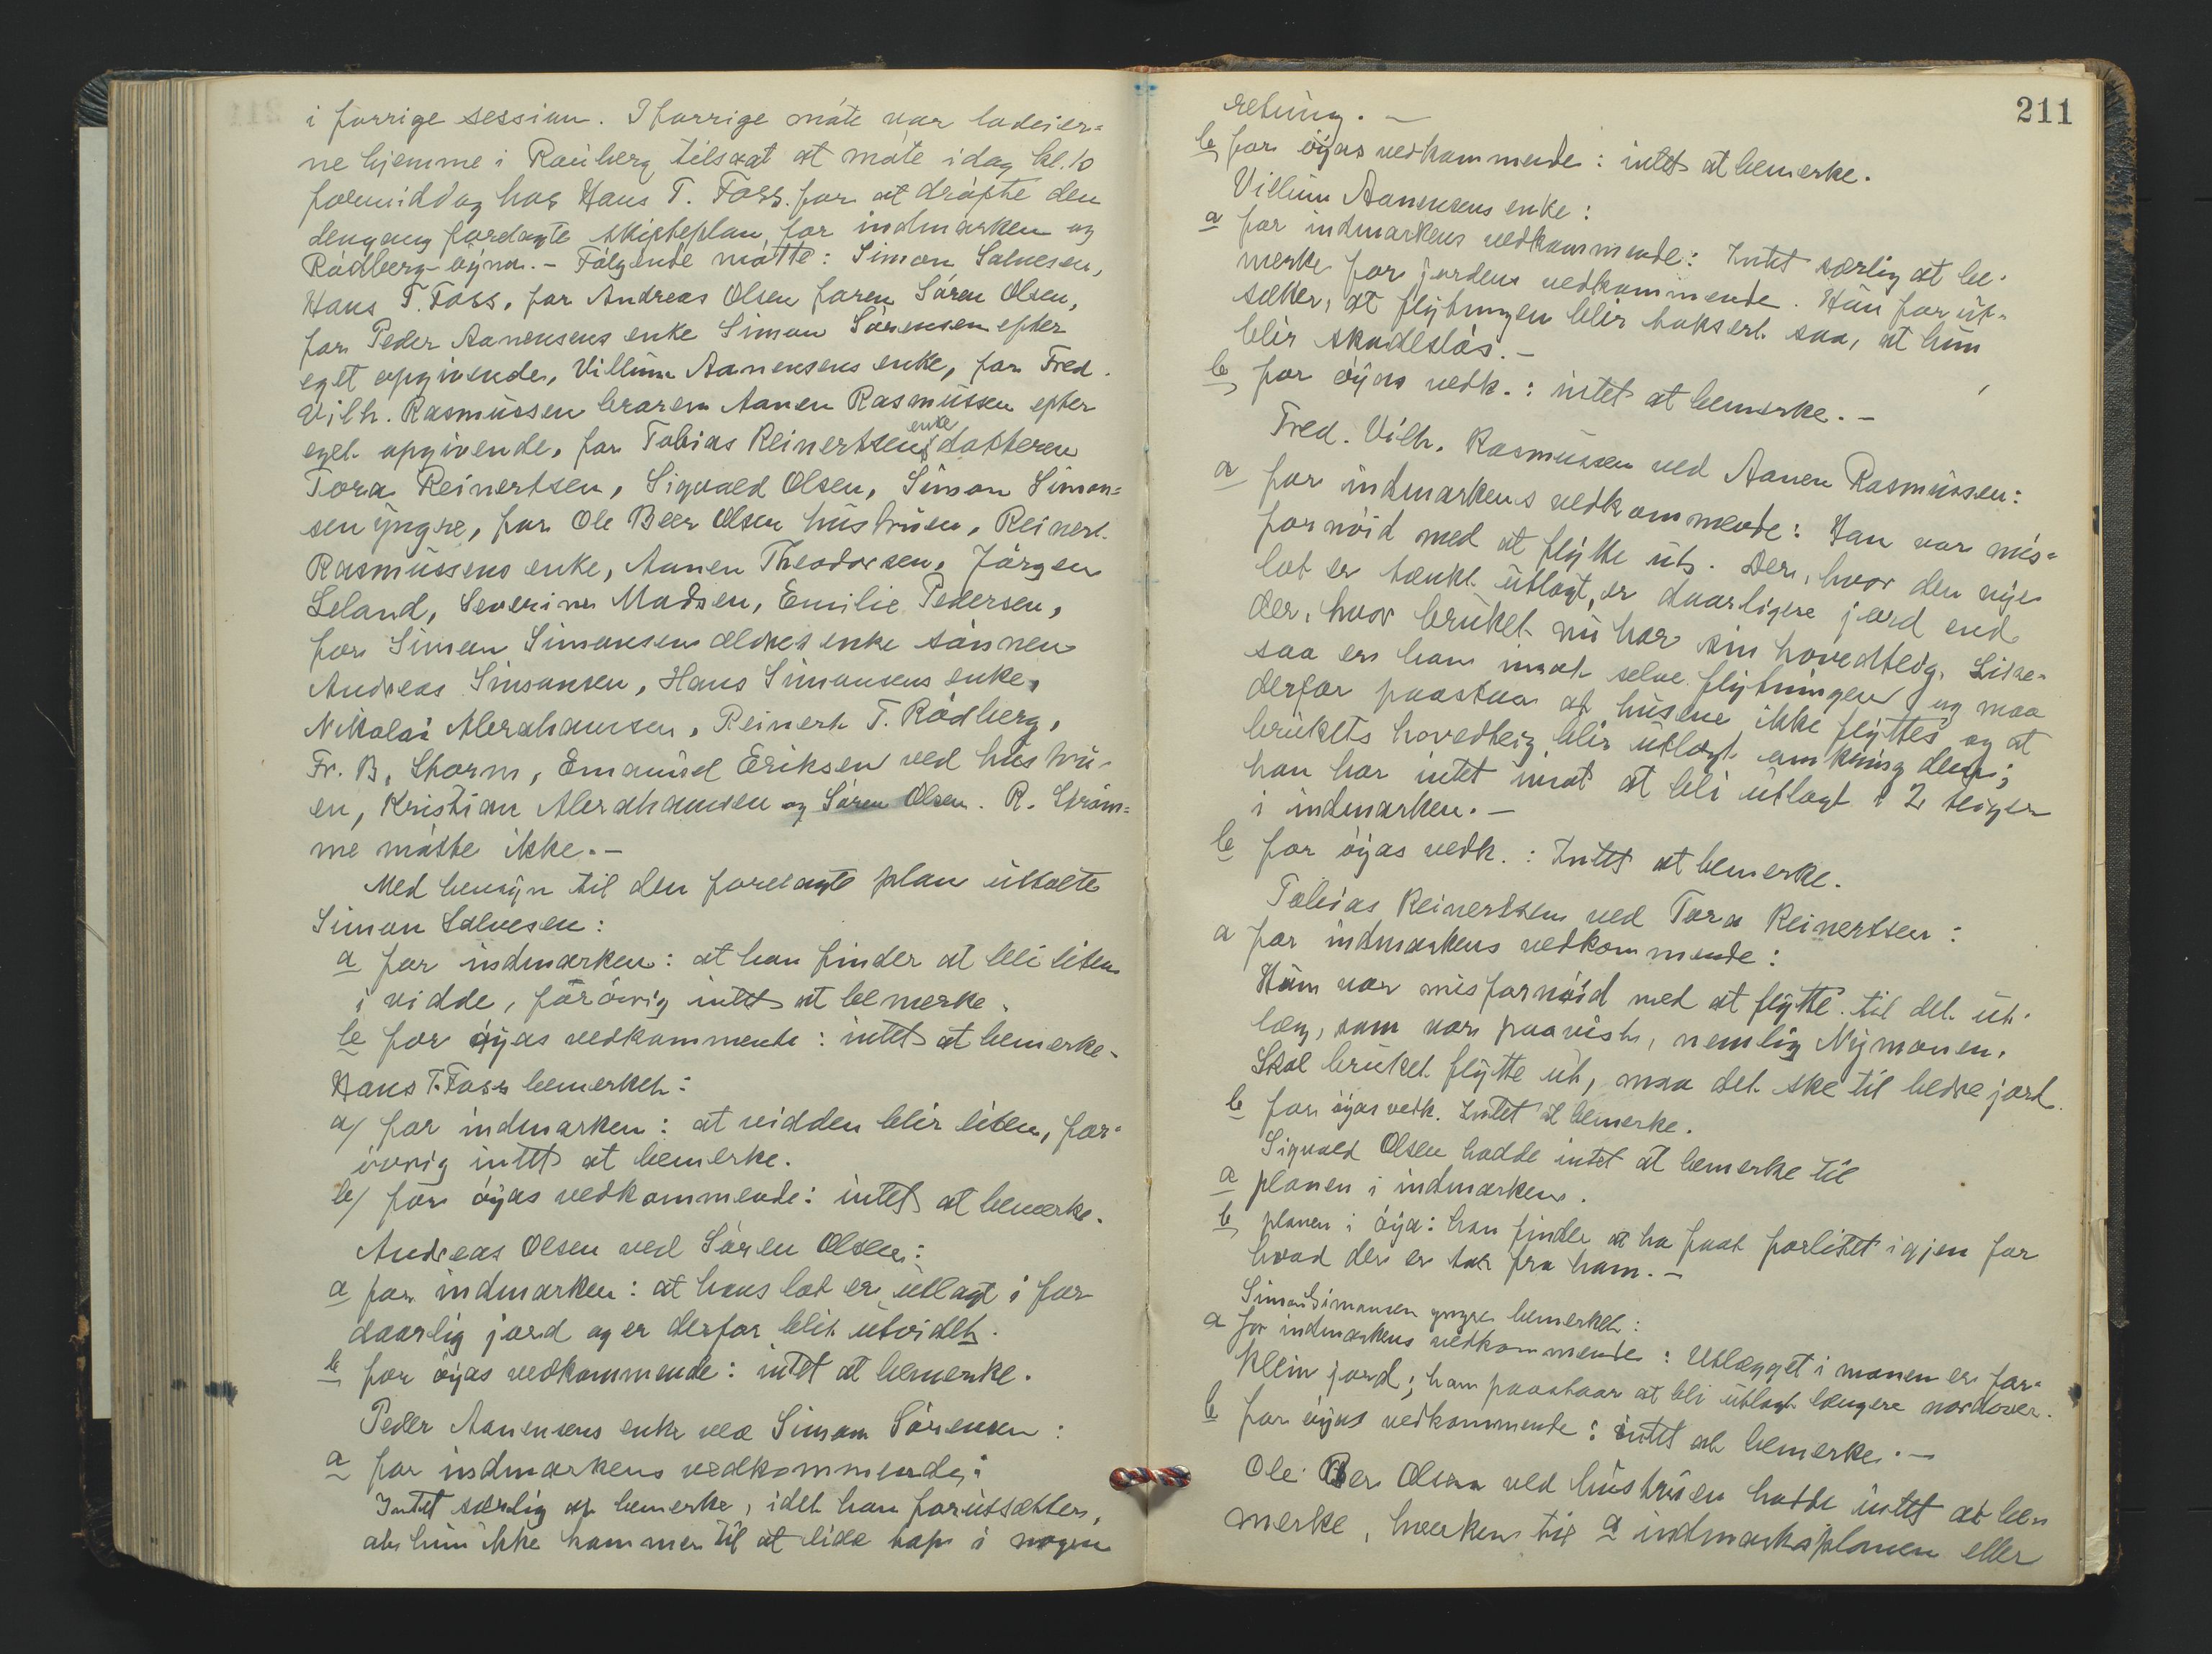 i forrige session. I forrige møte var lodeier=
ne hjemme i Rauberg tilsaat at møte idag kl. 10
formiddag hos Hans T. Foss. for at drøfte den
dengang fordagte skifteplan for indmarken og
Rødberg-øyna. - Følgende møtte: Simon Salvesen,
Hans T. Foss, for Andreas Olsen faren Søren Olsen,
for Peder Aanensens enke Simon Sørensen efter
eget opgivende, Villum Aanensens enke, for Fred.
Vilh. Rasmussen broren Aanen Rasmussen efter
eget opgivende, for Tobias Reinertsens enke datteren
Tora Reinertsen, Sigvald Olsen, Simon Simon=
sen yngre, for Ole Beer Olsen hustruen, Reinert
Rasmussens enke, Aanen Theodorsen, Jørgen
Leland, Severine Madsen, Emilie Pedersen,
for Simon Simonsen ældres enke sønnen
Andreas Simonsen, Hans Simonsens enke,
Nikolai Abrahamsen, Reinert T. Rødberg,
Fr. B. Storm, Emanuel Eriksen ved hustru-
en, Kristian Abrahamsen og Søren Olsen. R. Strøm=
me møtte ikke. -
Med hensyn til den forelagte plan uttalte
Simon Salvesen:
a for indmarken: at han finder at bli liten
i vidde, forøvrig intet at bemerke.
b for øyas vedkommende: intet at bemerke.
Hans T. Foss bemerket:
a) for indmarken: at vidden blir liten, for=
øvrig intet at bemerke.
b) for øyas vedkommende: intet at bemerke.
Andreas Olsen ved Søren Olsen:
a for indmarken: at hans lot er utlagt i for
daarlig jord og er derfor blit utvidet.
b for øyas vedkommende: intet at bemerke.
Peder Aanensens enke ved Simon Sørensen:
a for indmarkens vedkommende:
Intet særlig at bemerke, idet han forutsætter,
at hun ikke kommer til at lide tap i nogen
211
retning. -
b for øyas vedkommende: intet at bemerke.
Villum Aanensens enke:
a for indmarkens vedkommende: Intet særlig at be-
merke for jordens vedkommende. Hun forut-
sætter, at flytningen blir taksert saa, at hun
blir skadesløs. -
b for øyas vedk.: intet at bemerke. -
Fred. Vilh. Rasmussen ved Aanen Rasmussen:
a for indmarkens vedkommende: Han var mis=
fornøid med at flytte ut. Der, hvor den nye
lot er tænkt utlagt, er daarligere jord end
der, hvor bruket nu har sin hovedteig. Like-
saa er han imot selve flytningen og maa
derfor paastaa at husene ikke flyttes og at
brukets hovedteig blir utlagt omkring dem;
han har intet imot at bli utlagt i 2 teiger
i indmarken. -
b for øyas vedk.: Intet at bemerke.
Tobias Reinertsen ved Tora Reinertsen:
a for indmarkens vedkommende:
Hun var misfornøid med at flytte til det ut-
læg, som var paavist, nemlig Nymonen.
Skal bruket flytte ut, maa det ske til bedre jord.
b for øyas vedk. Intet at bemerke.
Sigvald Olsen hadde intet at bemerke til
a planen i indmarken.
b planen i øya: han finder at ha faat forlitet igjen for
hvad der er tat fra ham. -
Simon Simonsen yngre bemerket:
a for indmarkens vedkommende: Utlægget i monen er for=
klein jord; han paastaar at bli utlagt længere nordover.
b for øyas vedkommende: intet at bemerke. -
Ole Beer Olsen ved hustruen hadde intet at be=
merke, hverken til a indmarksplanen eller